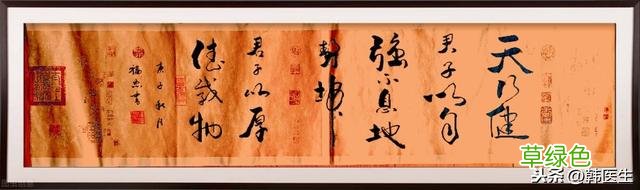 天行健
君子以自
強不息地
勢坤
君子以厚
德載物
庚子秋月
草绿色
头条@韩医生